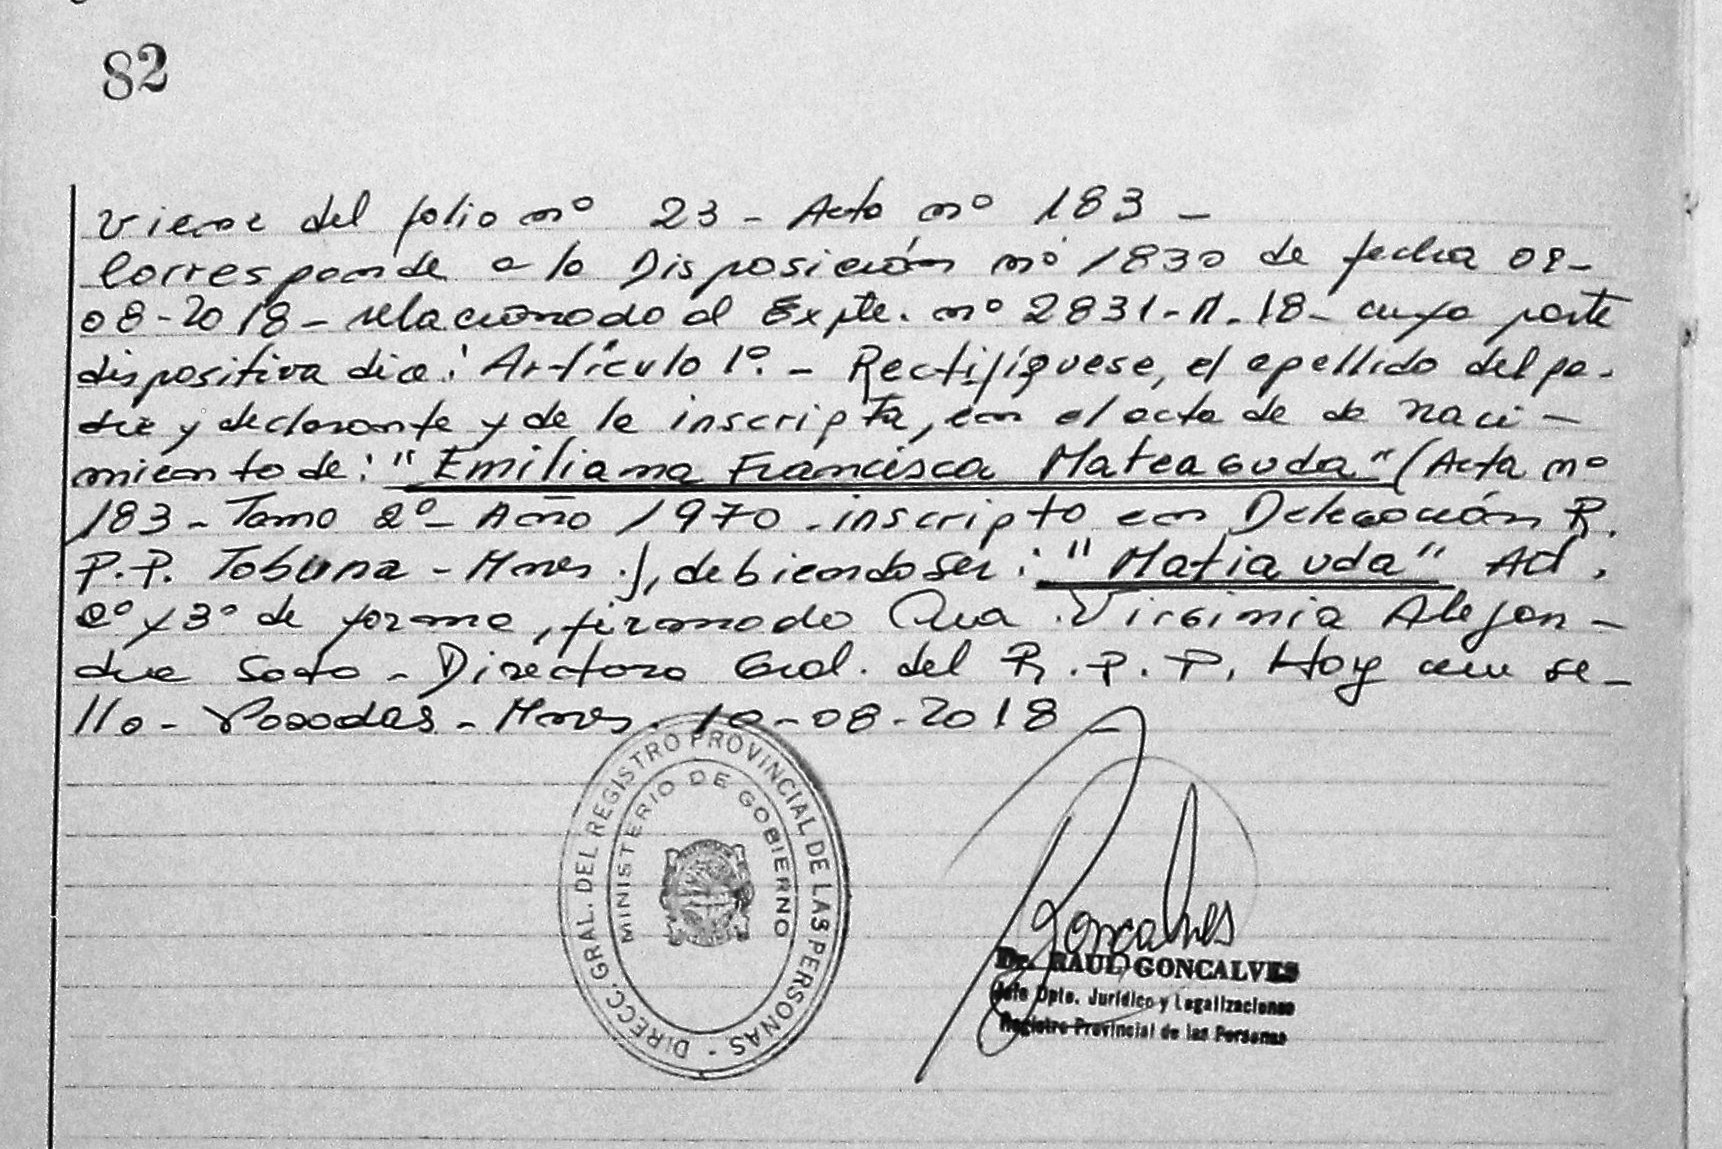 82
Viene del folio nº 23 - Acta nº 183 -
Corresponde a la Disposición nº 1830 de fecha 08-
08-2018 - relacionado al Expte. nº 2831-M-18 - cuya parte
dispositiva dice: Artículo 1º. - Rectifíquese, el apellido del pa-
dre y declarante y de la inscripta, en el acta de de naci-
miento de: "Emiliana Francisca Mateaguda" (Acta nº
183 - Tomo 2º - Año 1970 - inscripto en Delegación R.
P.P. Tobuna - Mnes.), debiendo ser: "Matiauda" Art.
2º y 3º de forma, firmado Dra. Virginia Alejan-
dra Soto - Directora Gral. del R.P.P. Hay un se-
llo - Posadas - Mnes. 10-08-2018 -
DIRECC. GRAL. DEL REGISTRO PROVINCIAL DE LAS PERSONAS -
MINISTERIO DE GOBIERNO
Goncalves
Dr. RAUL GONCALVES
Jefe Dpto. Jurídico y Legalizaciones
Registro Provincial de las Personas